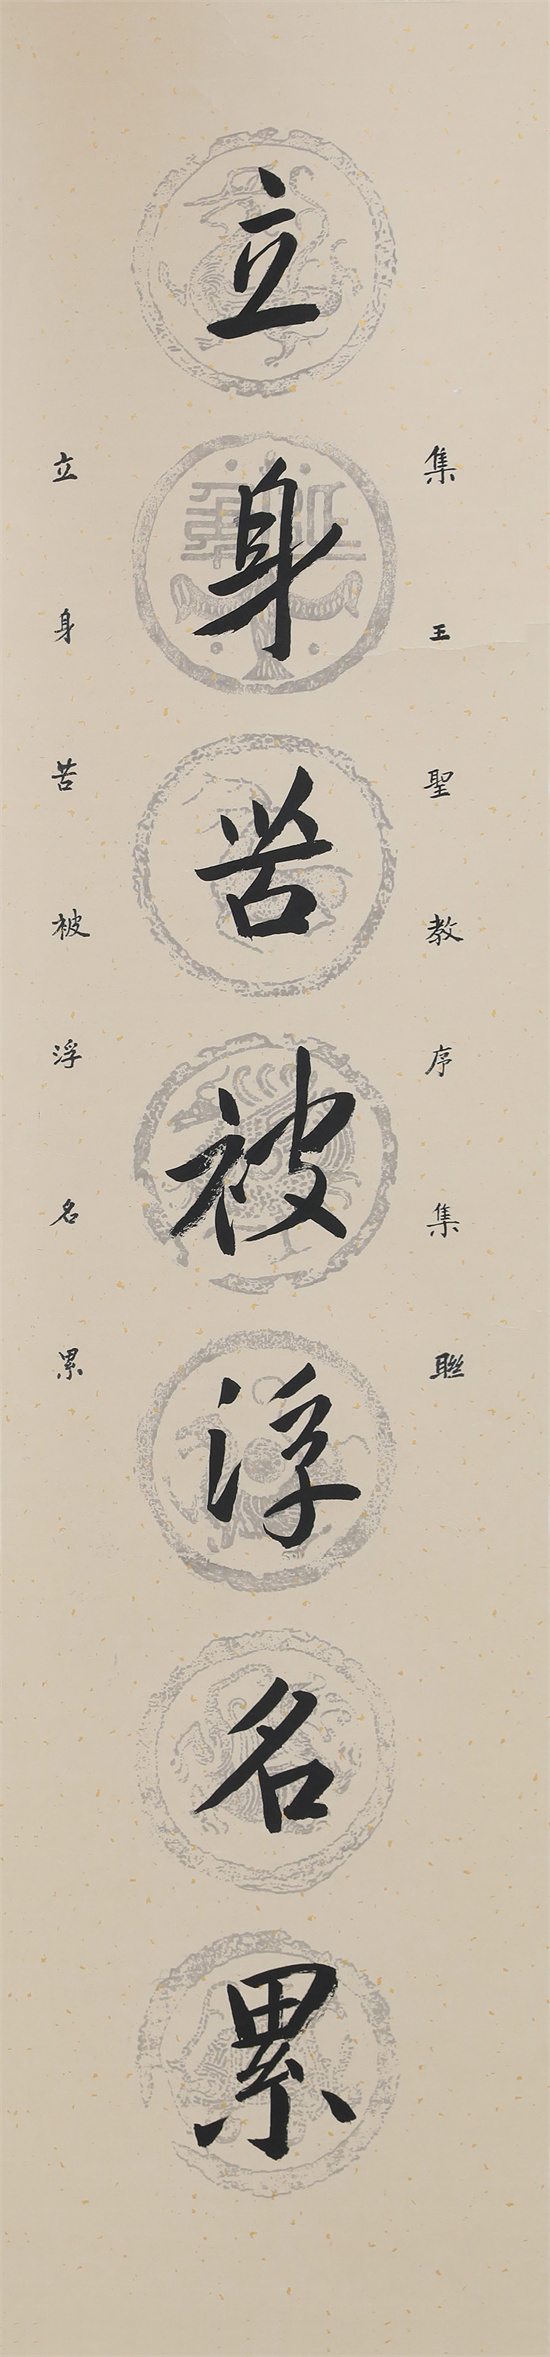 集王聖教序集聯
立身苦被浮名累
立身苦被浮名累